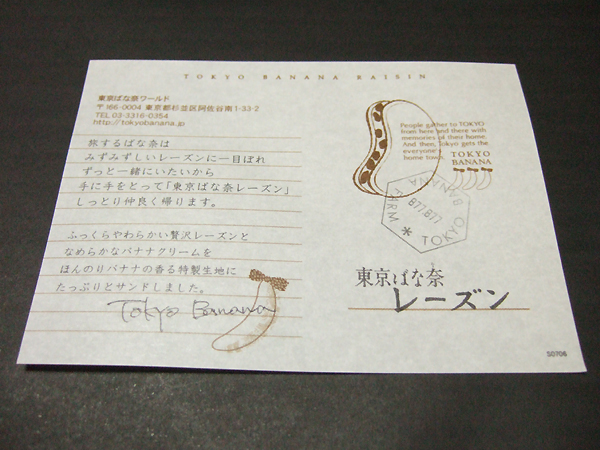 TOKYO BANANA RAISIN
東京ばな奈ワールド
〒166-0004 東京都杉並区阿佐谷南1-33-2
TEL 03-3316-0354
http://tokyobanana.jp
旅するばな奈は
みずみずしいレーズンに一目ぼれ
ずっと一緒にいたいから
手に手をとって「東京ばな奈レーズン」
しっとり仲良く帰ります。
ふっくらやわらかい贅沢レーズンと
なめらかなバナナクリームを
ほんのりバナナの香る特製生地に
たっぷりとサンドしました。
Tokyo Banana
People gather to TOKYO
from here and there with
memories of their home.
And then, Tokyo gets the
everyone's
home town.
TOKYO
BANANA
TOKYO BANANA FARM *
877.877
東京ばな奈
レーズン
S0706